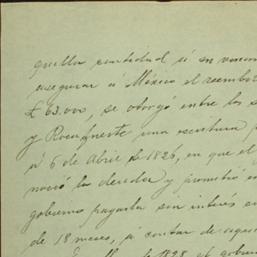 quella cantidad si en
asegurar á México el reembol
£ 63.000, se otorgó entre los s
y Rocafuerte una escritura
á 6 de Abril de 1826, en que el
noció la deuda y prometió
gobierno pagarla sin interes en
de 18 meses, á contar de aque
de 1828 el gobier